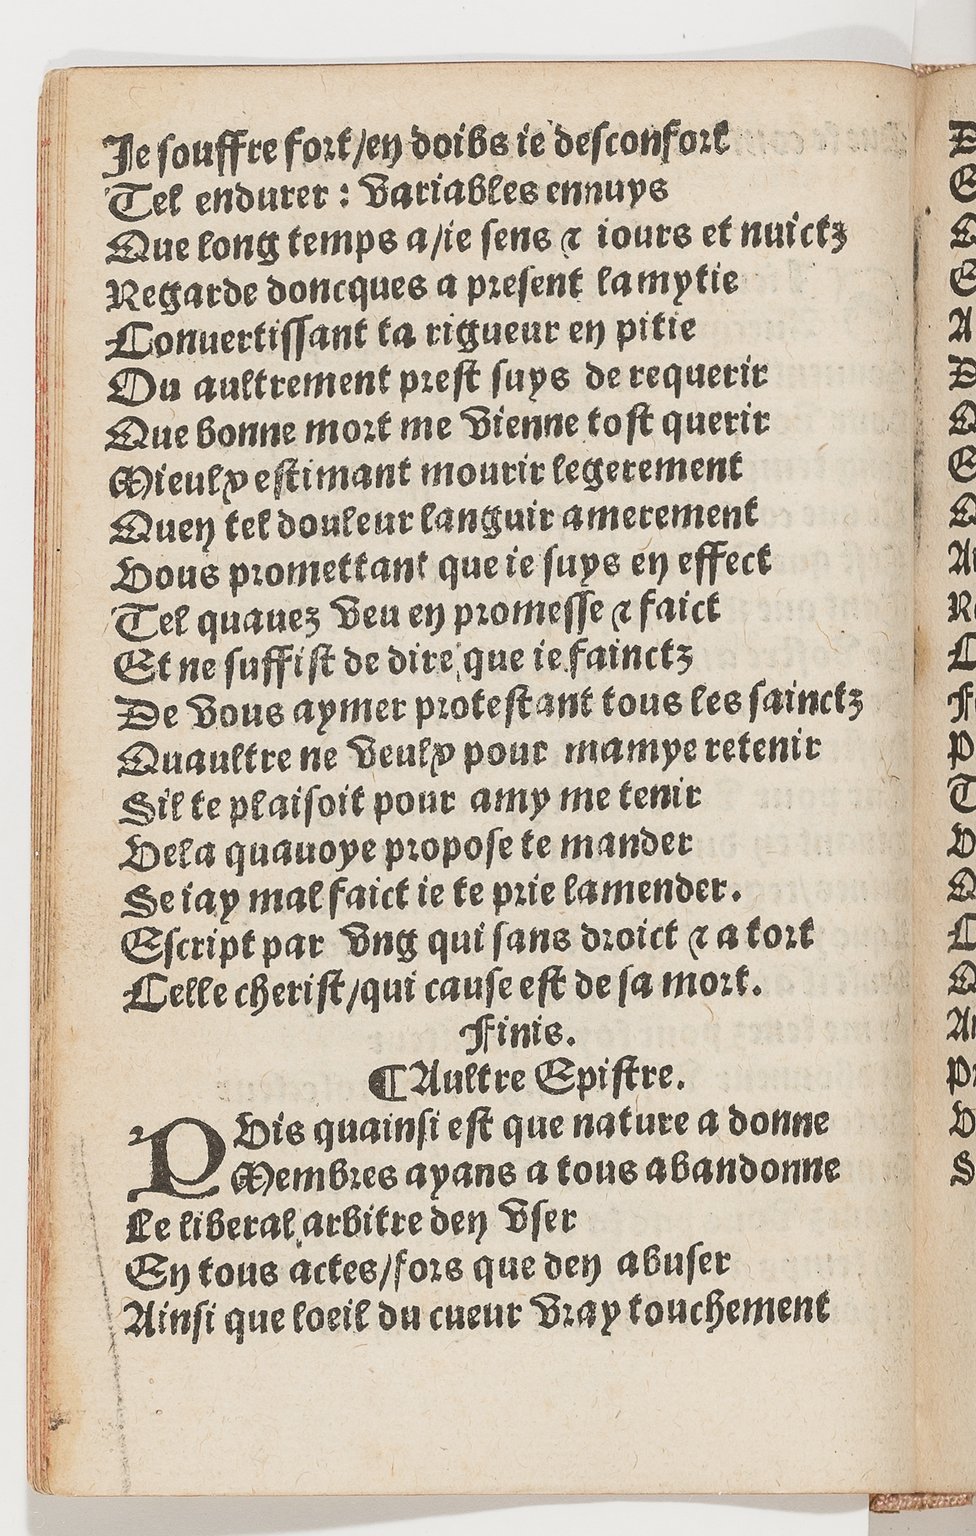 Je souffre fort/en doibs ie desconfort
Tel endurer : variables ennuys
Que long temps a/ie sens ⁊ iours et nuictz
Regarde doncques a present lamytie
Conuertissant ta rigueur en pitie
Ou aultrement prest suys de requerir
Que bonne mort me vienne tost querir
Mieulx estimant mourir legerement
Quen tel douleur languir amerement
Vous promettant que ie suys en effect
Tel quauez veu en promesse ⁊ faict
Et ne suffist de dire que ie fainctz
De vous aymer protestant tous les sainctz
Quaultre ne veulx pour mamye retenir
Sil te plaisoit pour amy me tenir
Vela quauoye propose te mander
Se iay mal faict ie te prie lamender.
Escript par vng qui sans droict ⁊ a tort
Celle cherist/qui cause est de sa mort.
Finis.
¶Aultre Epistre.
PVis quainsi est que nature a donne
Membres ayans a tous abandonne
Le liberal arbitre den vser
En tous actes/fors que den abuser
Ainsi que loeil du cueur vray touchement
D
E
Q
E
A
D
Q
E
Q
Au
Re
C
Fe
P
T
V
Q
C
Q
Au
Pr
V
S